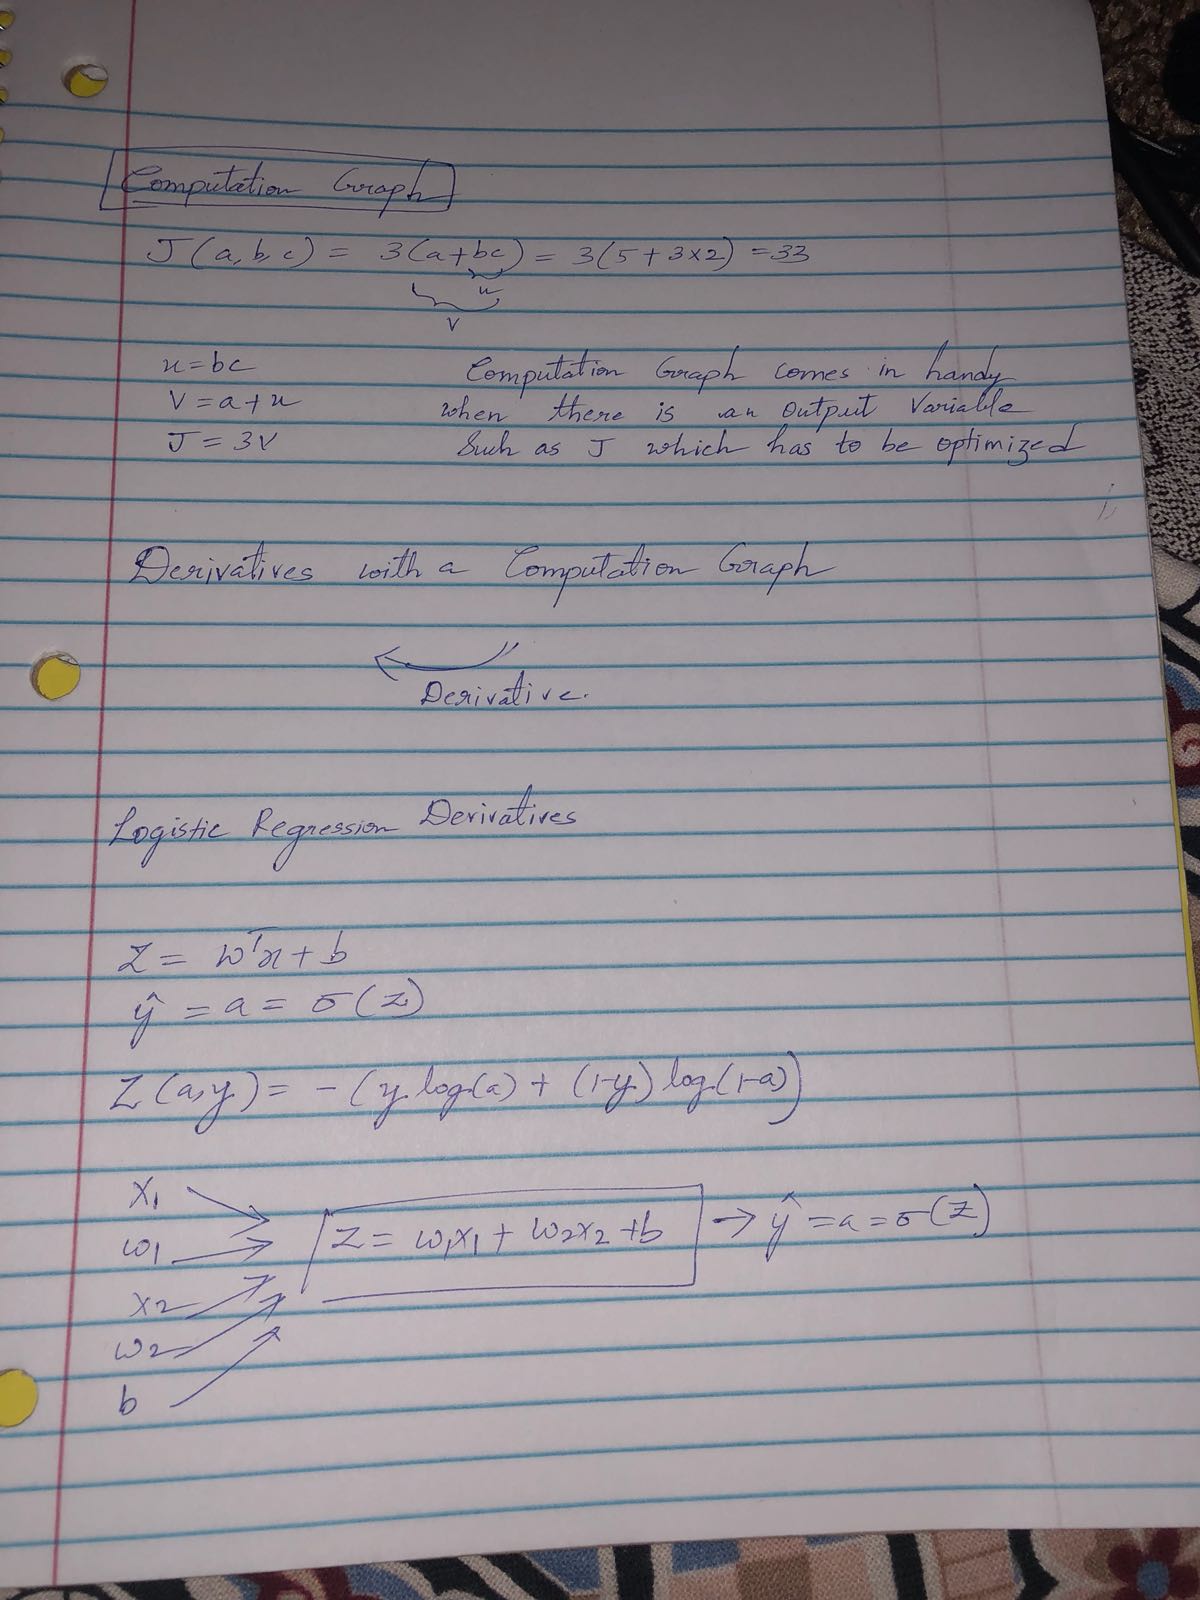 Computation Graph
J(a,b,c) = 3(a+bc) = 3(5+3×2) = 33
u
v
u = bc
v = a+u
J = 3v
Computation Graph comes in handy
when there is an output variable
Such as J which has to be optimized
Derivatives with a Computation Graph
Derivative.
Logistic Regression Derivatives
z = wᵀx + b
ŷ = a = σ(z)
L(a,y) = -(y log(a) + (1-y) log(1-a))
x₁
w₁
x₂
w₂
b
z = w₁x₁ + w₂x₂ + b → ŷ = a = σ(z)